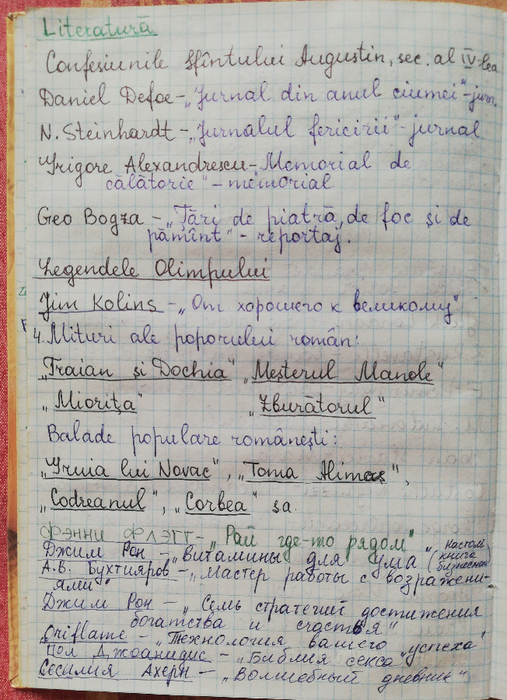 Literatură
Confesiunile Sfîntului Augustin, sec. al IV-lea
Daniel Defoe-„Jurnal din anul ciumei"-jurn.
N. Steinhardt-„Jurnalul fericirii"-jurnal
Grigore Alexandrescu-Memorial de
călătorie"-memorial
Geo Bogza-„Țări de piatră, de foc și de
pămînt"-reportaj.
Legendele Olimpului
Jim Kolins-„От хорошего к великому"
4. Mituri ale poporului român:
„Traian și Dochia" „Meșterul Manole"
„Miorița" „Zburătorul"
Balade populare românești:
„Gruia lui Novac", „Toma Alimoș",
„Codreanul", „Corbea" ș.a.
Фэнни Флэгг-„Рай где-то рядом"
Джим Рон-„Витамины для ума" (Настольн. книга бизнесмена
А.В. Бухтияров-„Мастер работы с возражени-
ями"
Джим Рон-„Семь стратегий достижения
богатства и счастья"
Oriflame-„Технология вашего успеха"
Пол Джоанидис-„Библия секса"
Сесилия Ахерн-„Волшебный дневник"